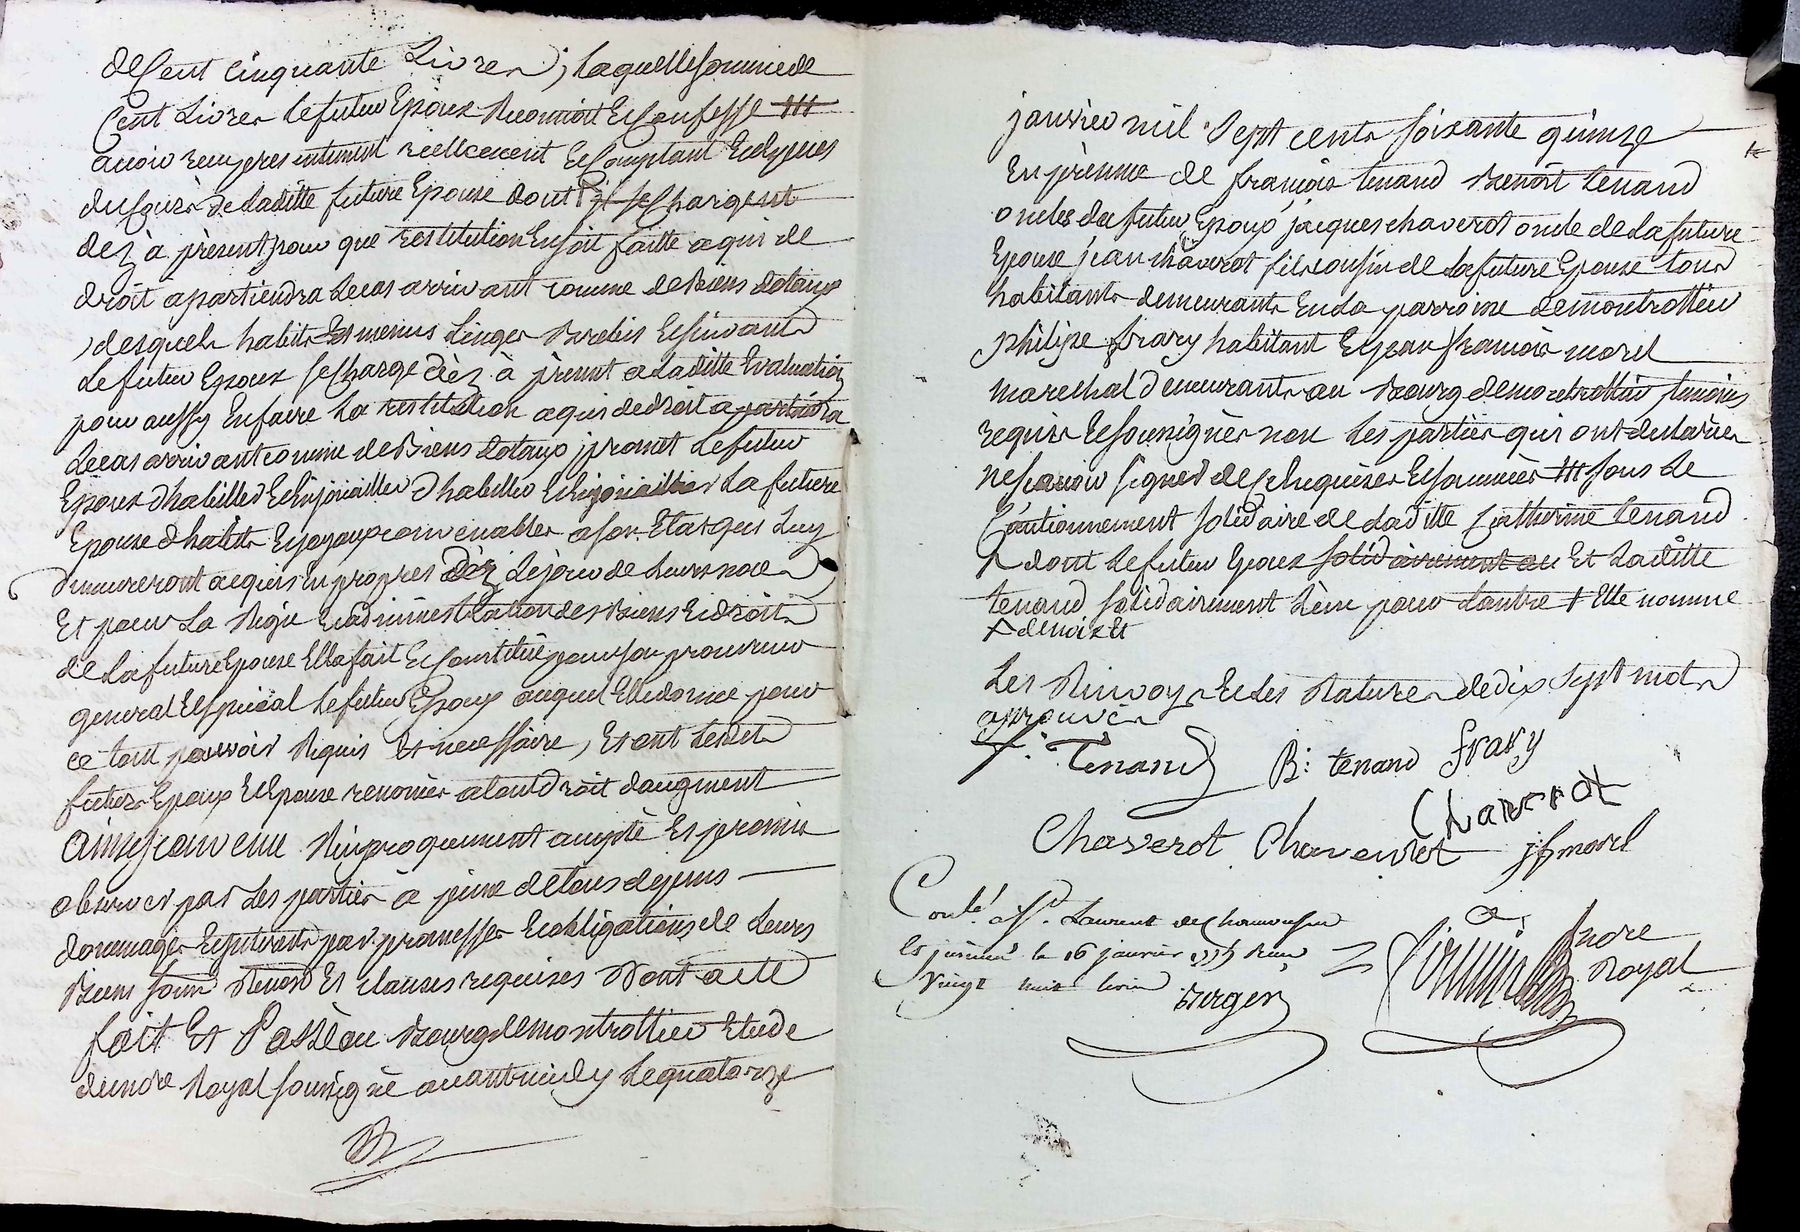 de Cent cinquante Livres, laquelle somme de
Cent Livres le futeur Epoux Reconnoit et Confesse ###
avoir reçu presentement reellement et Comptant et Especes
du Cours de laditte future Epouse dont il se Chargent
dez à present pour que restitution en soit faitte a qui de
droit apartiendra le cas arrivant comme de Biens dotaux
desquels habits et menus Linges Brebis et suivants
le futeur Epoux se Charge dèz à present a laditte Evaluation
pour aussy En faire La restitution a qui de droit apartiendra
le cas arrivant comme de Biens dotaux promet le futeur
Epoux d'habiller et Enjoüailler d'habiller et Enjoüailler la future
Epouse d'habits et joyaux convenables a son Etat qui Luy
demeureront acquis en propres dèz le jour de Leurs noces
Et pour la Regie et administration des Biens et droits
de la future Epouse Elle fait et Constitüe pour son procureur
general et special le futeur Epoux auquel Elle donne pour
ce tout pouvoir Requis et necessaire, Et ont lesdits
futeurs Epoux et Epouse renoncés a tout Droit d'augment
Ainsy convenu Reciproquement accepté Et promis
observer par les parties à peine de tous depens
dommages et interets par promesses et obligations de Leurs
Biens soum Renon Et clauses requises Dont acte
fait Et Passé au Bourg de montrottier Etude
du nore Royal soussigné avant midy le quatorze
janvier mil sept cents soixante quinze
En présence de françois tenand Benoit tenand
oncles du futeur Epoux, jacques chaverot oncle de la future
Epouse jean chaverot fils cousin de la future Epouse tous
habitants demeurants En la parroisse de montrottier
philipe frary habitant et jean françois morel
marechal demeurants au Bourg de montrottier temoins
requis et soussignés non les parties qui ont declarées
ne sçavoir signer de ce Enquises et sommées ### sous le
Cautionnement solidaire de laditte Catherine tenand
⅄ dont le futeur Epoux solidairement au Et laditte
tenand solidairement l'un pour l'autre + Elle nomme
⅄ demoizet
Les Renvoys et les Ratures de dix sept mots
approuvés
f: Tenand B: tenand frary
Chaverot
Chaverot Chaverot jf morel
Conlé à St. Laurent de Chamousset
le 16 janvier 1775 Reçu
Vingt huit livres
Berger
nore
Royal